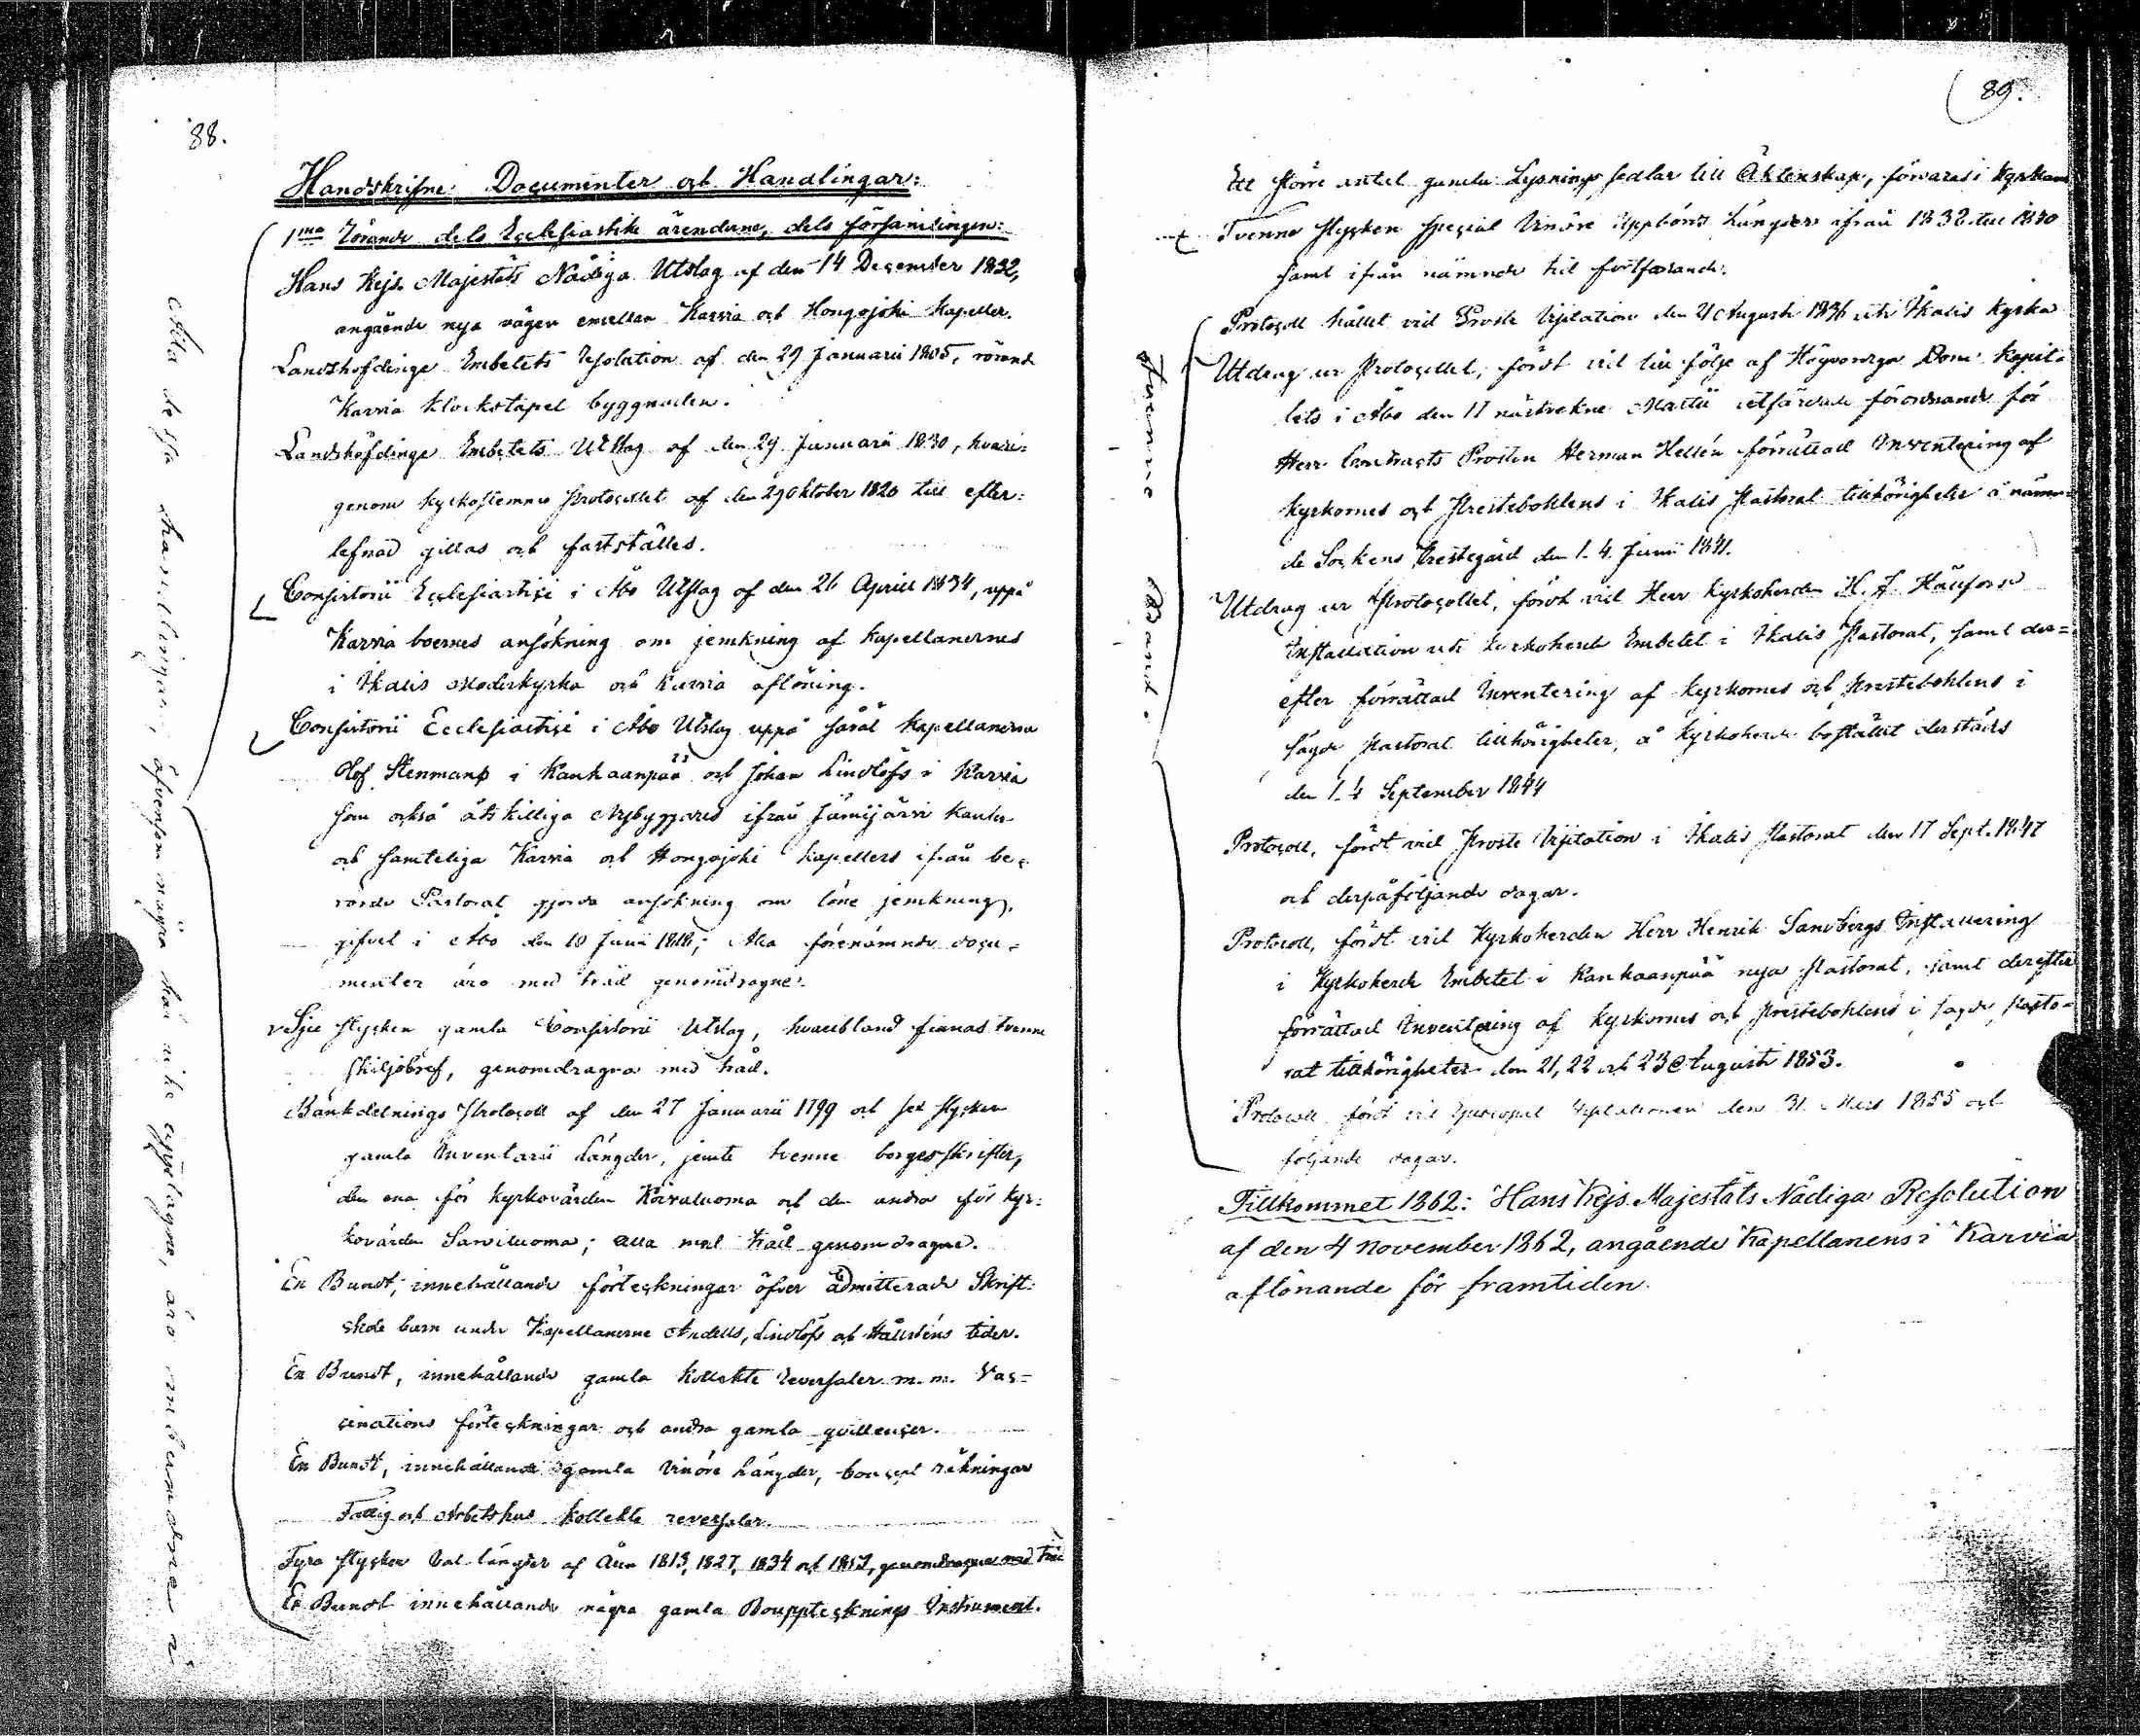 88.
Handskrifne Documenter och Handlingar:
1mo Rörande dels Ecclesiastike ärenderne, dels församlingen:
Hans Kejs. Majestäts Nådiga Utslag af den 14 December 1832,
angående nya vägen emellan Karvia och Hongojoki Kapeller.
Landshöfdinge Embetets Resolution af den 29 Januarii 1805, rörande
Karvia Klockstapel byggnaden.
Landshöfdinge Embetets Utslag af den 29 Januarii 1830, hvari-
genom Kyrkostemno Protocollet af den 29 Oktober 1820 till efter-
lefnad gillas och fastställes.
Consistorii Ecclesiastici i Åbo Utslag af den 26 April 1834, uppå
Karvia boernes ansökning om jemkning af Kapellanernes
i Ikalis Moderkyrka och Karvia aflöning.
Consistorii Ecclesiastici i Åbo Utslag uppå såväl Kapellanerne
Olof Stenmans i Kankaanpää och Johan Lindlöfs i Karvia
som också åtskilliga Nybyggares ifrån Jämijärvi
och samteliga Karvia och Hongojoki Kapellers ifrån be-
rörde Pastorat gjorda ansökning om löne jemkning,
gifvet i Åbo den 10 Junii 1818; Alla förenämnde docu-
menter äro med tråd genomdragne.
Sju stycken gamla Consistorii Utslag, hvaribland finnas tvenne
skiljobref, genomdragna med tråd.
Bänkdelnings Protocoll af den 27 Januarii 1799 och sex stycken
gamla Inventarii Längder, jemte tvenne borgesskrifter,
den ena för Kyrkovärden Karvaluoma och den andra för Kyr-
kovärden Sarviluoma; alla med tråd genomdragne.
En Bundt, innehållande förteckningar öfver admitterade Skrift-
skole barn under Kapellanerne Andells, Lindlöfs och Hällsténs tider.
En Bundt, innehållande gamla Kollekte Reversaler m. m. Vac-
cinations förteckningar och andra gamla qvittencer.
En Bundt, innehållande gamla Vinöre Längder, Concept räkningar
Fattig och Arbetshus Kollekte reversaler.
Fyra stycken Val-längder af Åren 1813, 1827, 1834 och 1852, genomdragne med tråd
En Bundt innehållande några gamla Bouppteknings Instrument.
Alla dessa handlingar, äfvensom några här icke upptagna, äro inbundna i
Tvenne Band.
89.
Ett större antal gamla Lysnings sedlar till Äktenskap, förvaras i Kyrkan
Tvenne stycken special Vinöre Uppbörds Längder ifrån 1838 till 1850
samt ifrån nämnde tid fortfarande.
Protocoll hållet vid Prosts Visitation den 21 Augusti 1836 uti Ikalis Kyrka
Utdrag ur Protocollet, fördt vid till följe af Högvordiga Dom Kapit-
lets i Åbo den 17 nästvekne Martii utfärdade förordnande för
Herr Contracts Prosten Herman Hellén förrättad Inventering af
Kyrkornes och Prestebohlens i Ikalis Pastorat tillhörigheter å nämn-
de Sockens Prestegård den 1-4 Junii 1841.
Utdrag ur Protocollet, fördt vid Herr Kyrkoherden H. J.
Installation uti Kyrkoherde Embetet i Ikalis Pastorat, samt der-
efter förrättad Inventering af Kyrkornes och Prestebohlens i
sagde Pastorat tillhörigheter, å Kyrkoherde bostället derstädes
den 1-4 September 1844
Protocoll, fördt vid Prosts Visitation i Ikalis Pastorat den 17 Sept. 1847
och derpåföljande dagar.
Protocoll, fördt vid Kyrkoherden Herr Henrik Sandbergs Installering
i Kyrkoherde Embetet i Kankaanpää nya Pastorat, samt derefter
förrättad Inventering af Kyrkornes och Prestebohlens i sagde Pasto-
rat tillhörigheter den 21, 22 och 23 Augusti 1853.
Protocoll fördt vid Episcopal Visitationen den 31 Mars 1855 och
följande dagar.
Tillkommet 1862: Hans Kejs. Majestäts Nådiga Resolution
af den 4 November 1862, angående Kapellanens i Karvia
aflönande för framtiden.